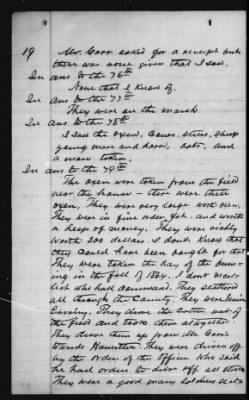 19 Mr. Carr asked for a receipt but
there was none given that I saw.
In ans to the 76th
None that I know of.
In ans to the 77th
They were on the march
In ans. to the 78th
I saw the oxen, cows, steers, sheep
young mare and horse, oats, and
a mare taken.
In ans to the 79th
The oxen were taken from the field
near the house - there were three
oxen, They were very large work oxen.
They were in fine order, fat, and worth
a heap of money. They were richly
worth 300 dollars. I don't know that
they could have been bought for that
They were taken the day of the
in the fall of 1864. I don't recol-
lect who had command. They scattered
all through the County. They were
Cavalry. They drove the cattle out of
the field and took them altogether
They drove them up from Mr Carr's
towards Hamilton. They were driven off
by the order of the Officer who said
he had orders to drive off all stock
They were a good many soldiers